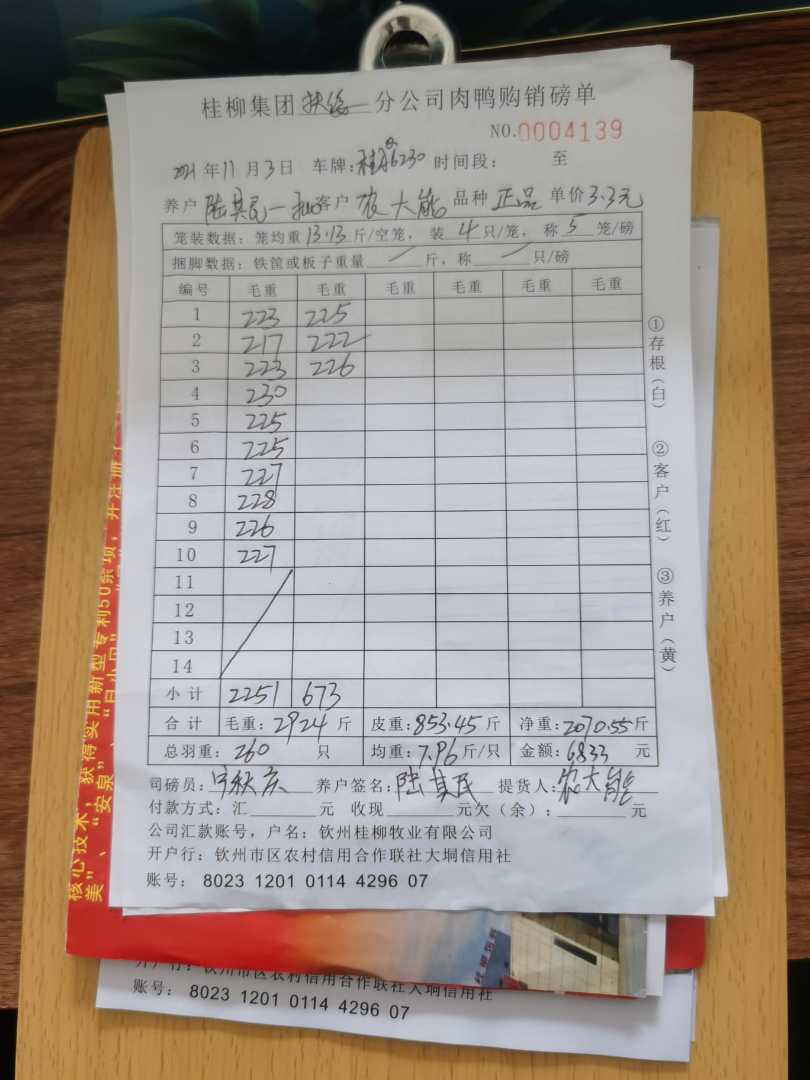 桂柳集团扶绥分公司肉鸭购销磅单
NO.0004139
2021年11月3日 车牌:桂 6230 时间段: 至
养户 陆其民 客户 农大能 品种 正品 单价3.3元
笼装数据: 笼均重 13.13 斤/空笼, 装 4 只/笼, 称 5 笼/磅
捆脚数据: 铁筐或板子重量 / 斤, 称 / 只/磅
编号 毛重 毛重 毛重 毛重 毛重 毛重
1 223 225
2 217 222
3 223 226
4 230
5 225
6 225
7 227
8 228
9 226
10 227
11
12
13
14
小计 2251 673
合计 毛重:2924斤 皮重:853.45斤 净重:2070.55斤
总羽重: 260 只 均重:7.96斤/只 金额:6833 元
司磅员: 养户签名:陆其民 提货人:农大能
付款方式: 汇 元 收现 元欠(余): 元
公司汇款账号, 户名: 钦州桂柳牧业有限公司
开户行: 钦州市区农村信用合作联社大垌信用社
账号: 8023 1201 0114 4296 07
①存根(白) ②客户(红) ③养户(黄)
核心技术, 获得实用新型专利50余项,
美”、“安泉”、
开户行: 钦州市区农村信用合作联社大垌信用社
账号: 8023 1201 0114 4296 07